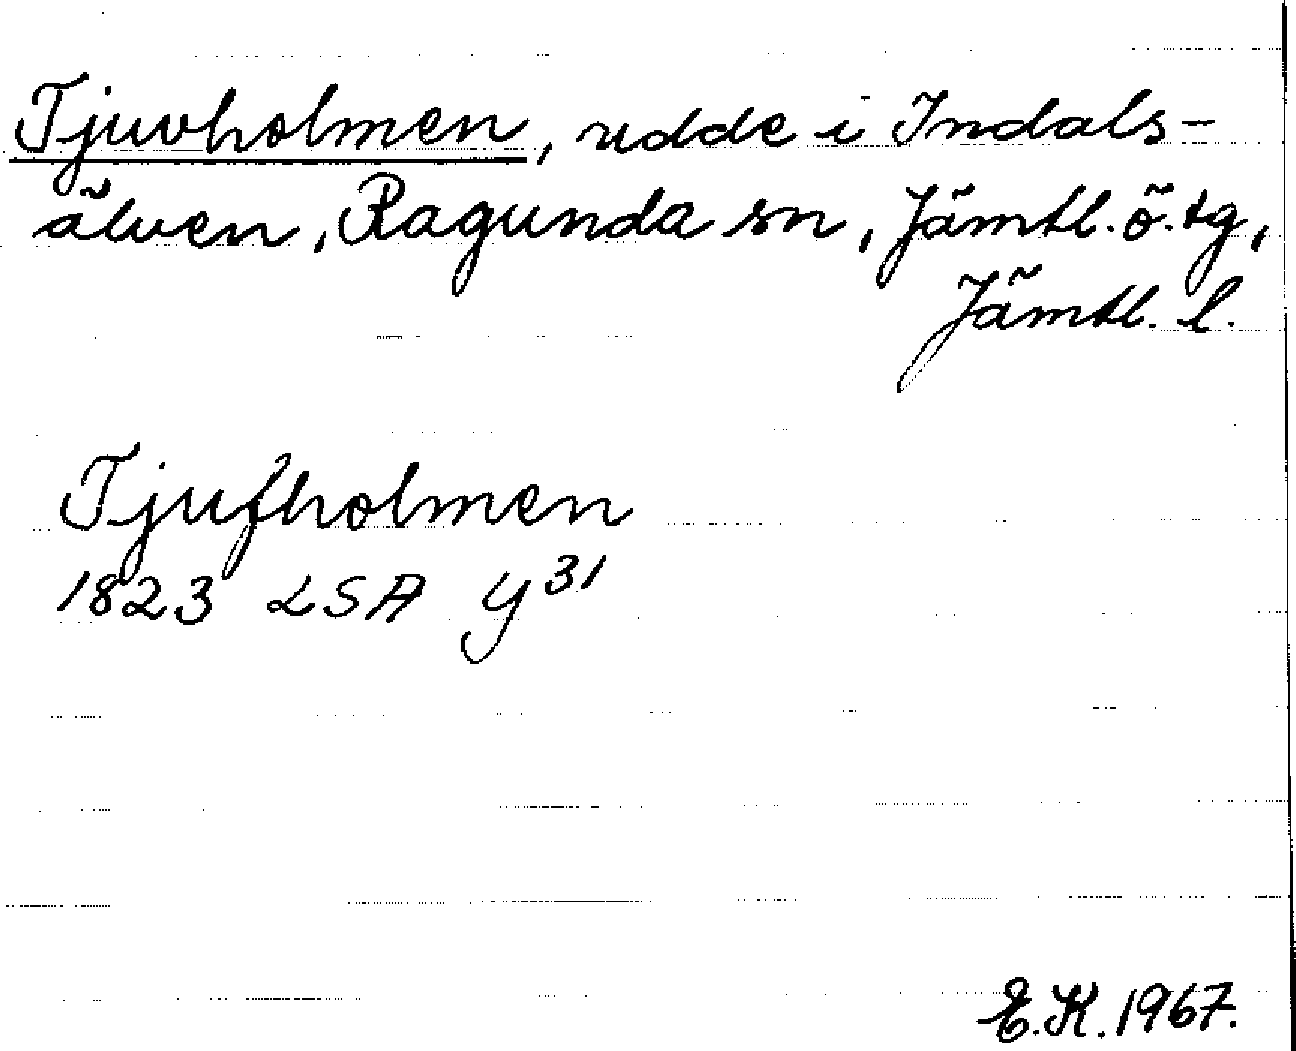 Tjuvholmen, udde i Indals-
älven, Ragunda sn, Jämtl. ö. tg,
Jämtl. l.
Tjufholmen
1823 LSA Y 31
E.K. 1967.